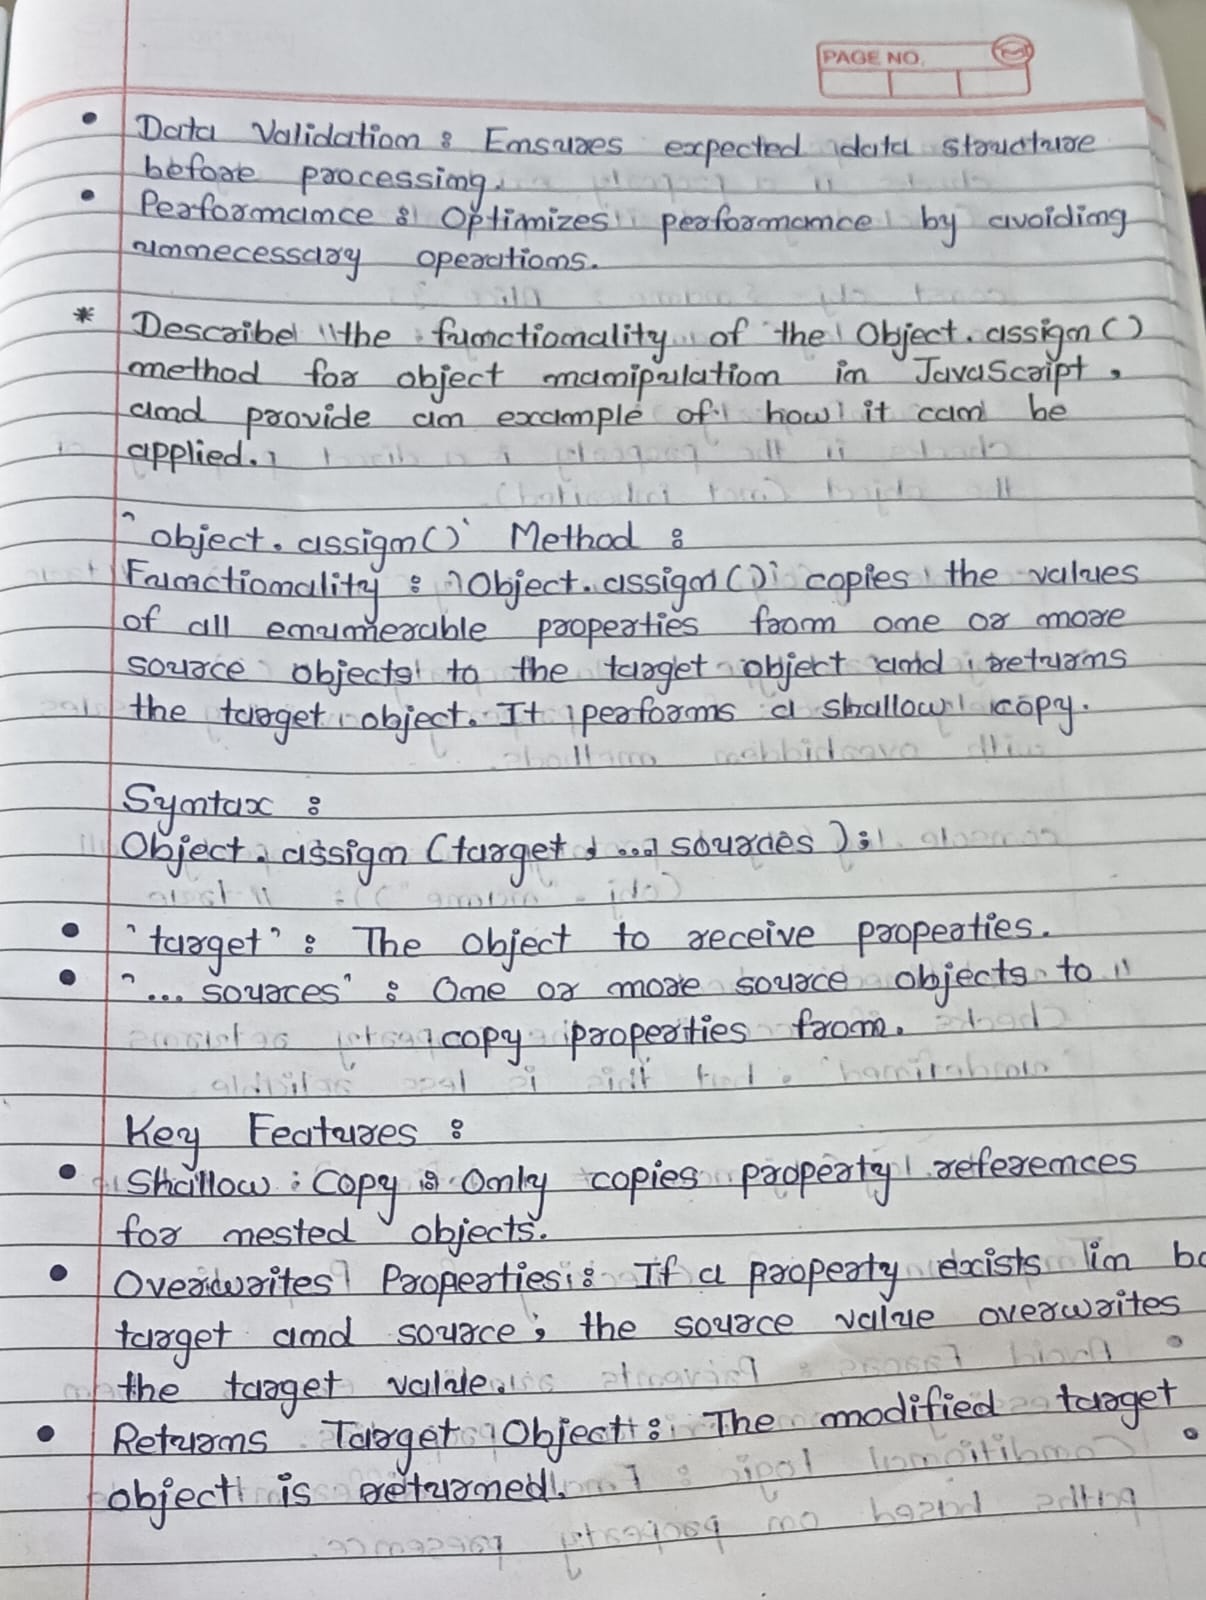 PAGE NO.
• Data Validation : Ensures expected data structure
before processing.
• Performance : Optimizes performance by avoiding
unnecessary operations.
* Describe the functionality of the Object.assign()
method for object manipulation in JavaScript,
and provide an example of how it can be
applied.
`object.assign()` Method :
Functionality : `Object.assign()` copies the values
of all enumerable properties from one or more
source objects to the target object and returns
the target object. It performs a shallow copy.
Syntax :
Object.assign (target, ...sources);
• `target` : The object to receive properties.
• `...sources` : One or more source objects to
copy properties from.
Key Features :
• Shallow Copy : Only copies property references
for nested objects.
• Overwrites Properties : If a property exists in bo
target and source, the source value overwrites
the target value.
• Returns Target Object : The modified target
object is returned.